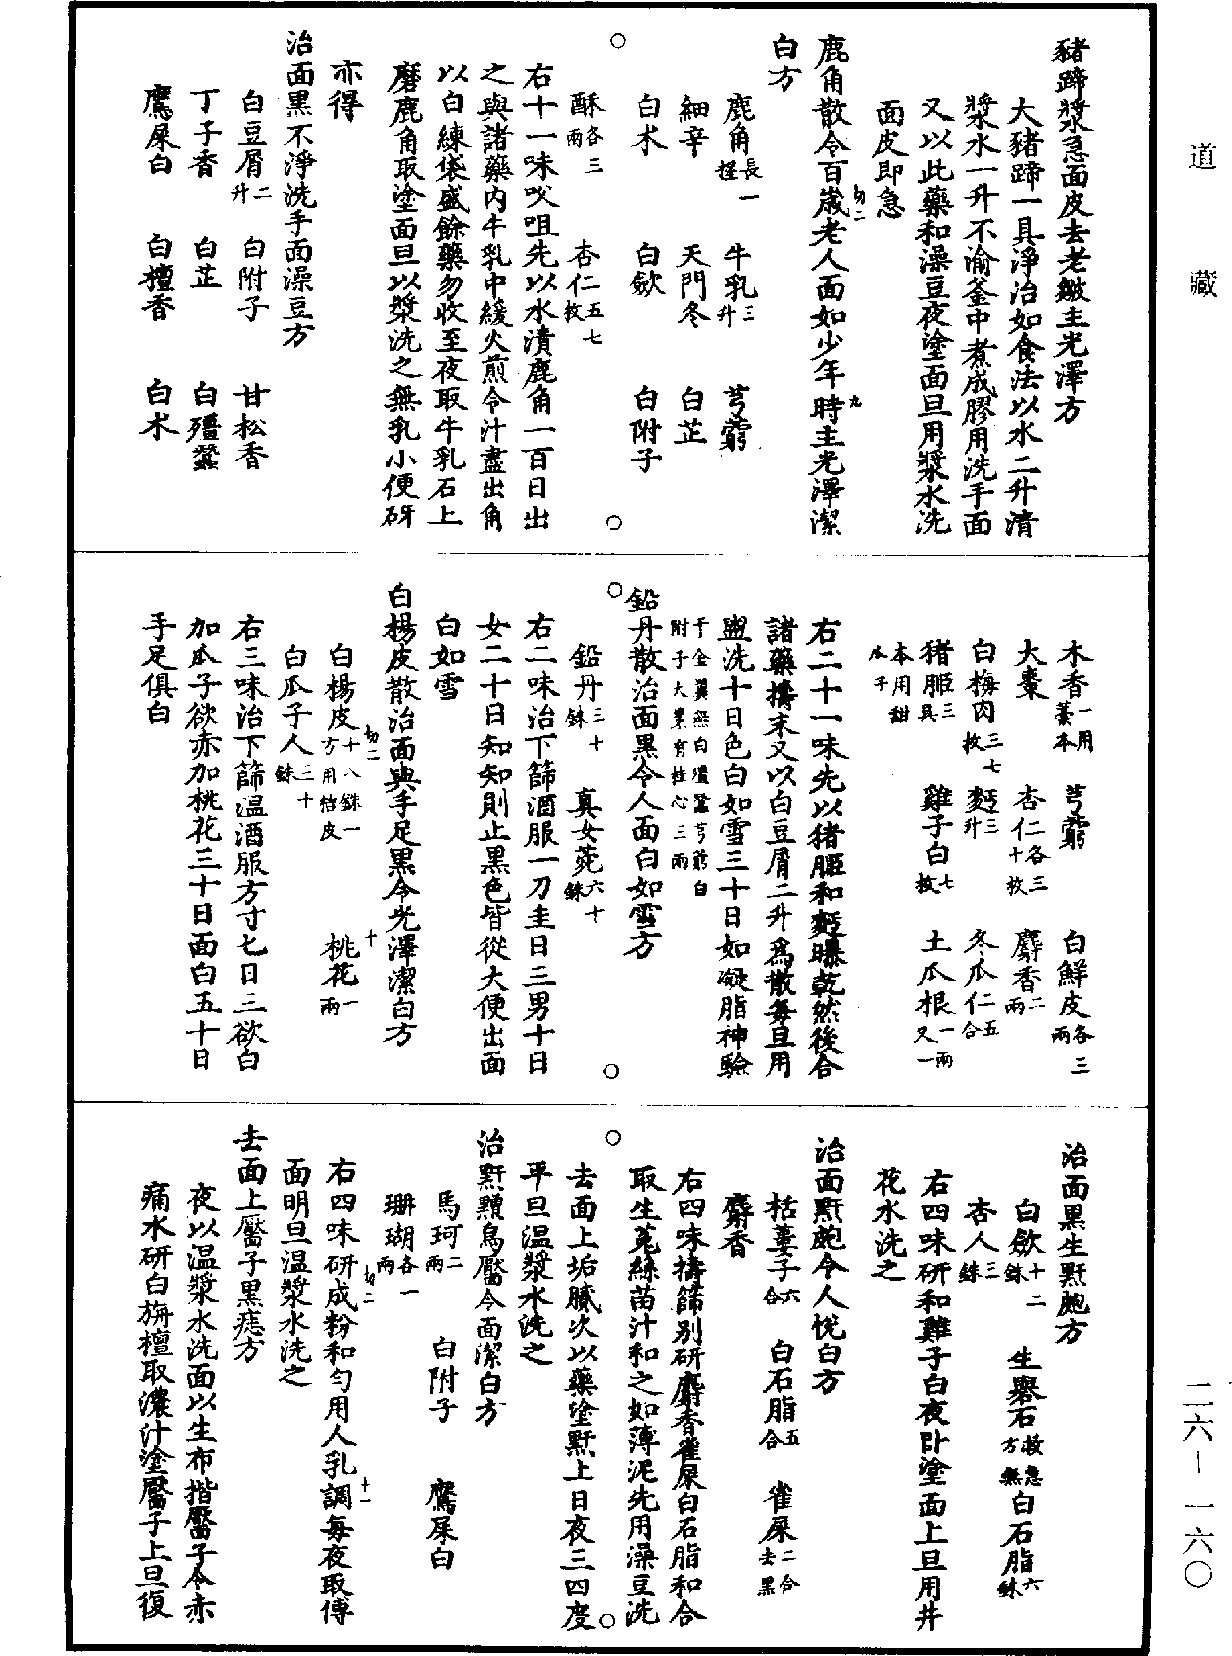 道藏
猪蹄漿急面皮去老皺主光澤方
大豬蹄一具淨治如食法以水二升清
漿水一升不渝釜中煮成膠用洗手面
又以此藥和澡豆夜塗面旦用漿水洗
面皮即急
鹿角散令百歲老人面如少年時主光澤潔
白方
鹿角長一握 牛乳三升 芎藭
細辛 天門冬 白芷
白朮 白歛 白附子
酥各三兩 杏仁五七枚
右十一味㕮咀先以水漬鹿角一百日出
之與諸藥內牛乳中緩火煎令汁盡出角
以白練袋盛餘藥勿收至夜取牛乳石上
磨鹿角取塗面旦以漿洗之無乳小便研
亦得
治面黑不淨洗手面澡豆方
白豆屑二升 白附子 甘松香
丁子香 白芷 白殭蠶
鷹屎白 白檀香 白朮
木香一用藁本 芎藭 白鮮皮各三兩
大棗 杏仁各三十枚 麝香二兩
白梅肉三七枚 麪三升 冬瓜仁五合
猪胰三具 雞子白七枚 土瓜根一兩又一
本用甜瓜子
右二十一味先以猪胰和麪曝乾然後合
諸藥擣末又以白豆屑二升爲散每旦用
盥洗十日色白如雪三十日如凝脂神驗
千金翼無白殭蠶芎藭白附子大棗有桂心三兩
鉛丹散治面黑令人面白如雪方
鉛丹三十銖 真女菀六十銖
右二味治下篩酒服一刀圭日三男十日
女二十日知知則止黑色皆從大便出面
白如雪
白楊皮散治面與手足黑令光澤潔白方
白楊皮十八銖一方用桔皮 桃花一兩
白瓜子人三十銖
右三味治下篩溫酒服方寸匕日三欲白
加瓜子欲赤加桃花三十日面白五十日
手足俱白
治面黑生䵟皰方
白歛十二銖 生礜石救急方無 白石脂六銖
杏人三銖
右四味研和雞子白夜臥塗面上旦用井
花水洗之
治面䵟皰令人悅白方
栝蔞子六合 白石脂五合 雀屎二合去黑
麝香
右四味擣篩別研麝香雀屎白石脂和合
取生菟絲苗汁和之如薄泥先用澡豆洗
去面上垢膩次以藥塗䵟上日夜三四度
平旦溫漿水洗之
治䵟䵳烏靨令面潔白方
馬珂二兩 白附子 鷹屎白
珊瑚各一兩
右四味研成粉和勻用人乳調每夜取傅
面明旦溫漿水洗之
去面上靨子黑痣方
夜以溫漿水洗面以生布揩靨子令赤
痛水研白旃檀取濃汁塗靨子上旦復
二六—一六〇